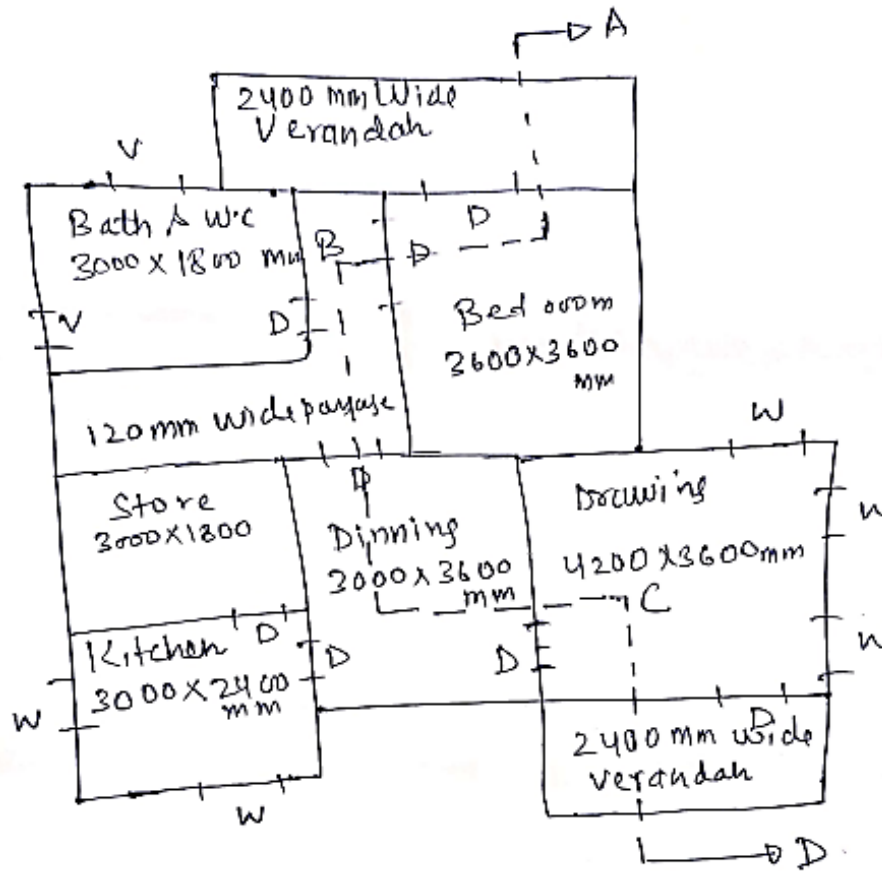 A
2400 mm Wide
Verandah
V
Bath & W.C
3000 X 1800 mm
B
D
D
V
D
Bed room
3600X3600
mm
120mm wide passage
W
Store
3000X1800
D
Dinning
3000 X 3600
mm
Drawing
4200 X3600mm
W
C
W
Kitchen
D
3000 X 2400
mm
D
D
W
W
D
2400 mm wide
verandah
D